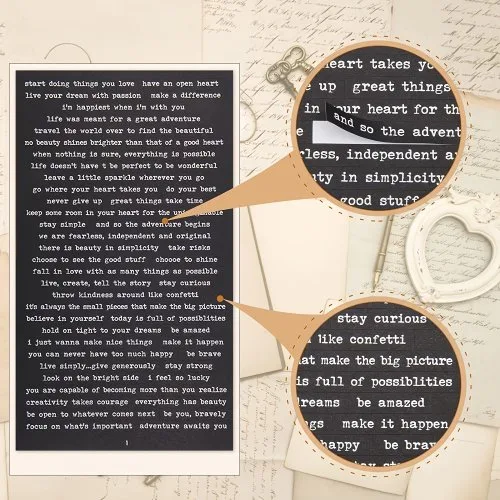 start doing things you love have an open heart
live your dream with passion make a difference
i'm happiest when i'm with you
life was meant for a great adventure
travel the world over to find the beautiful
no beauty shines brighter than that of a good heart
when nothing is sure, everything is possible
life doesn't have t be perfect to be wonderful
leave a little sparkle wherever you go
go where your heart takes you do your best
never give up great things take time
keep some room in your heart for the
stay simple and so the adventure begins
we are fearless, independent and original
there is beauty in simplicity take risks
choose to see the good stuff choose to shine
fall in love with as many things as possible
live, create, tell the story stay curious
throw kindness around like confetti
it's always the small pieces that make the big picture
believe in yourself today is full of possiblities
hold on tight to your dreams be amazed
i just wanna make nice things make it happen
you can never have too much happy be brave
live simply...give generously stay strong
look on the bright side i feel so lucky
you are capable of becoming more than you realize
creativity takes courage everything has beauty
be open to whatever comes next be you, bravely
focus on what's important adventure awaits you
1
heart takes yo
e up great things
in your heart for th
and so
e the advent
rless, independent a
uty in simplicity
good stuff
stay curious
like confetti
at make the big picture
is full of possiblities
reams be amazed
ngs make it happen
happy be brav
stay s